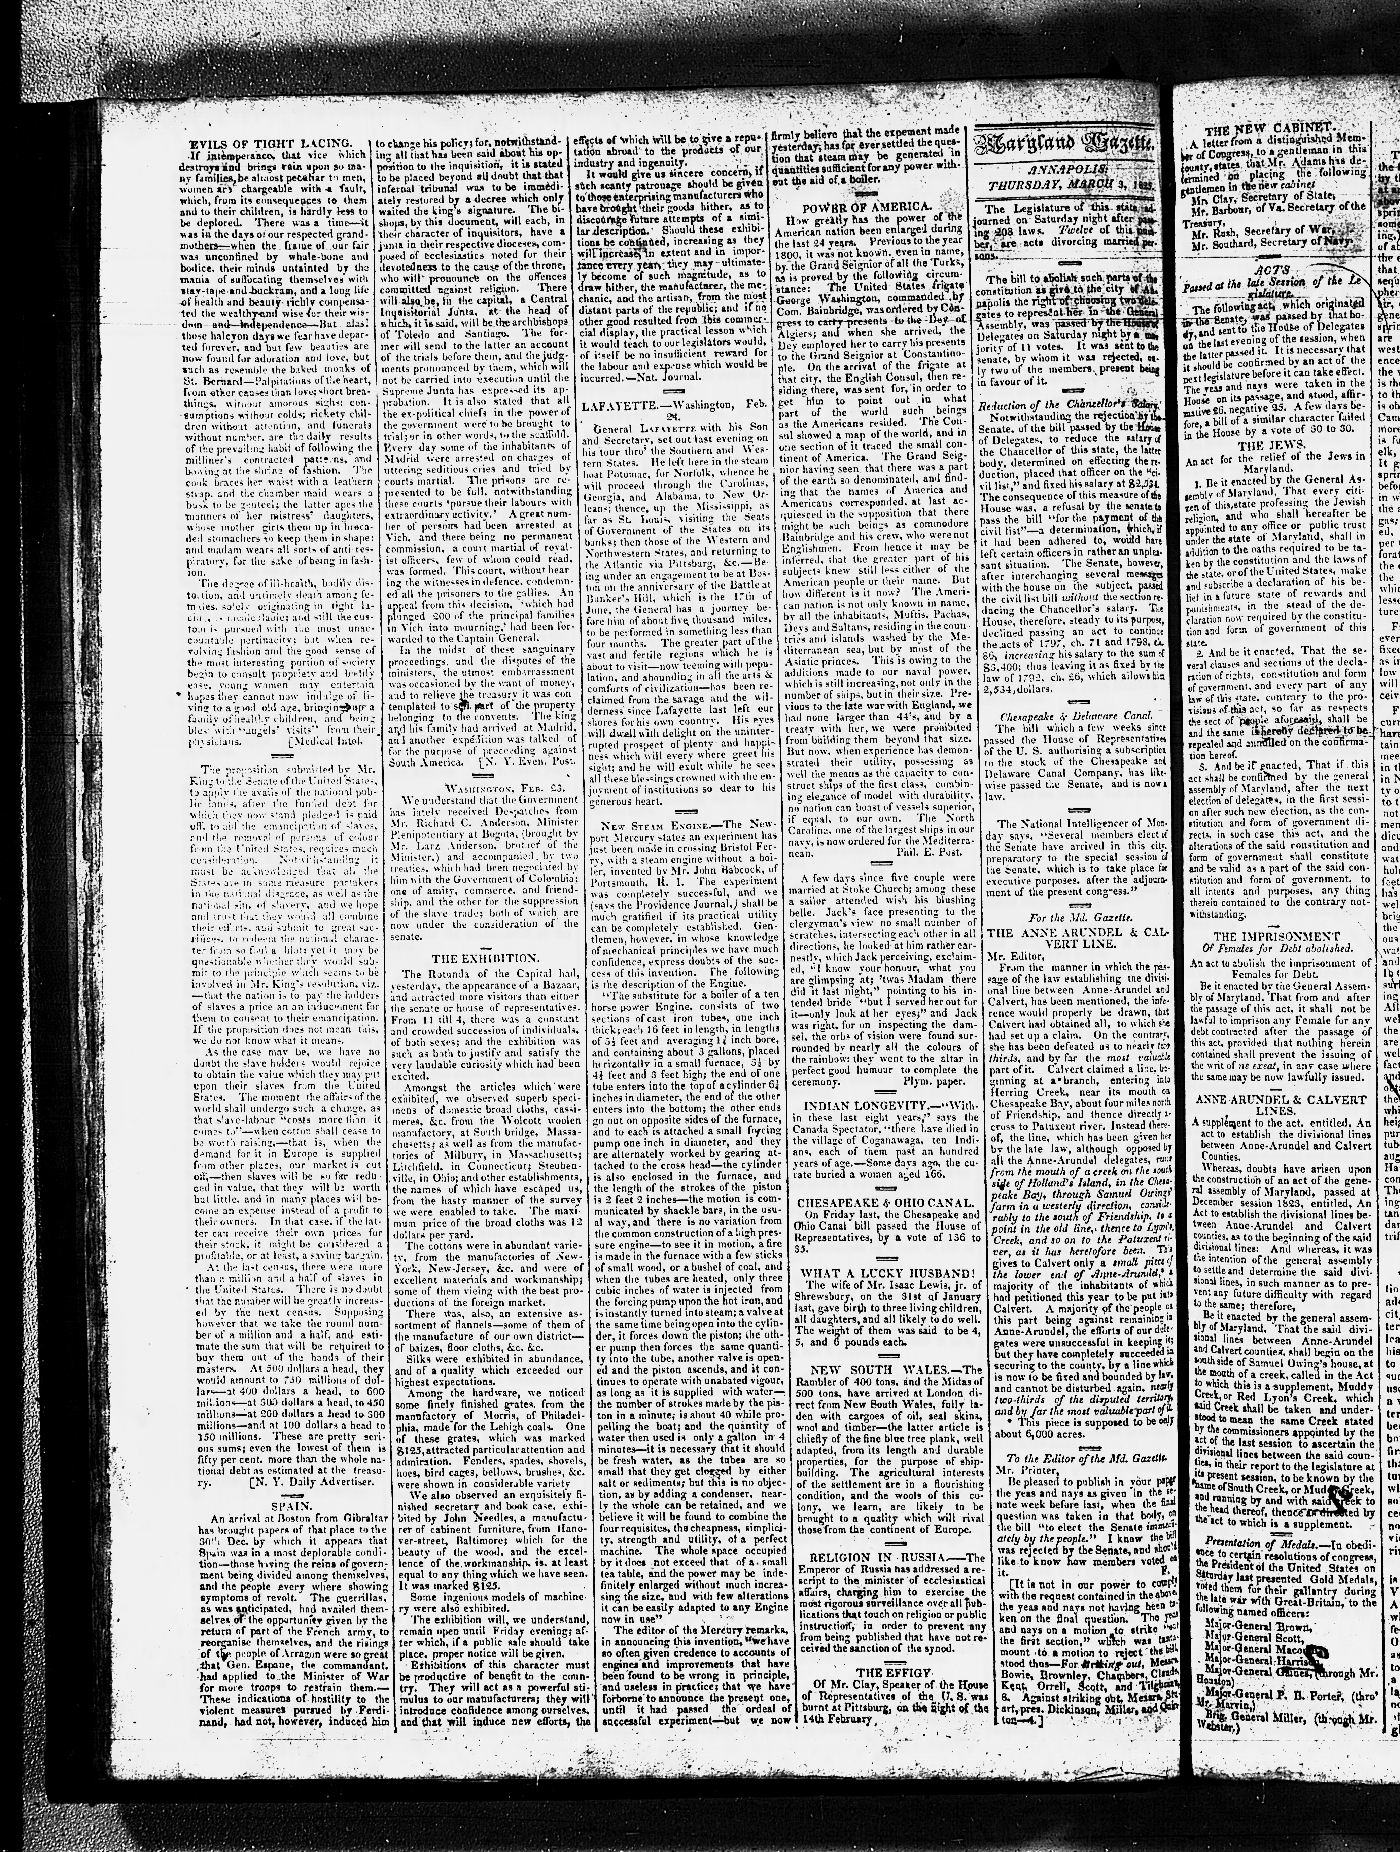 EVILS OF TIGHT LACING.
If intemperance, that vice which
destroys and brings ruin upon so ma-
ny families, be almost peculiar to men,
women are chargeable with a fault,
which, from its consequences to them
and to their children, is hardly less to
be deplored. There was a time—it
was in the days of our respected grand-
mothers—when the frame of our fair
was unconfined by whale-bone and
bodice, their minds untainted by the
mania of suffocating themselves with
stay-tape and buckram, and a long life
of health and beauty richly compensa-
ted the wealthy and wise for their wis-
dom and independence—But alas!
those halcyon days we fear have depar-
ted forever, and but few beauties are
now found for adoration and love, but
such as resemble the baked monks of
St. Bernard—Palpitations of the heart,
from other causes than love; short brea-
things, without amorous sighs; con-
sumptions without colds; rickety chil-
dren without attention, and funerals
without number, are the daily results
of the prevailing habit of following the
milliner's contracted patterns, and
bowing at the shrine of fashion. The
cook braces her waist with a leathern
strap, and the chamber maid wears a
busk to be genteel; the latter apes the
manners of her mistress' daughters,
whose mother girts them up in broca-
ded stomachers to keep them in shape;
and madam wears all sorts of anti res-
piratory, for the sake of being in fash-
ion.
The degree of ill-health, bodily dis-
tortion, and untimely death among fe-
males, solely originating in tight la-
still the cus-
tom is pursued with the most unac-
countable pertinacity; but when re-
volving fashion and the good sense of
the most interesting portion of society
begin to consult propriety and bodily
ease, young women may entertain
hopes they cannot now indulge of li-
ving to a good old age, bringing up a
family of healthy children, and being
bless with "angels' visits" from their
physicians. [Medical Intel.
The proposition submitted by Mr.
King to the Senate of the United States,
to apply the avails of the national pub-
lic lands, after the funded debt for
which they now stand pledged is paid
off, to aid the emancipation of slaves,
and the removal of persons of colour
from the United States, requires much
consideration. Notwithstanding it
must be acknowledged that all the
States are in some measure partakers
in the national disgrace, as well as the
national sin, of slavery, and we hope
and trust that they would all combine
their efforts, and submit to great sac-
rifices, to redeem the national charac-
ter from so foul a blot; yet it may be
questionable whether they would sub-
mit to the principle which seems to be
involved in Mr. King's resolution, viz.
—that the nation is to pay the holders
of slaves a price as an inducement for
them to consent to their emancipation.
If the proposition does not mean this,
we do not know what it means.
As the case may be, we have no
doubt the slave holders would rejoice
to obtain the value which they may put
upon their slaves from the United
States. The moment the affairs of the
world shall undergo such a change, as
that slave-labour "costs more than it
comes to"—when cotton shall cease to
be worth raising,—that is, when the
demand for it in Europe is supplied
from other places, our market is cut
off,—then slaves will be so far redu-
ced in value, that they will be worth
but little, and in many places will be-
come an expense instead of a profit to
their owners. In that case, if the lat-
ter can receive their own prices for
their stock, it might be considered a
profitable, or at least, a saving bargain.
At the last census, there were more
than a million and a half of slaves in
the United States. There is no doubt
that the number will be greatly increas-
ed by the next census. Supposing
however that we take the round num-
ber of a million and a half, and esti-
mate the sum that will be required to
buy them out of the hands of their
masters. At 500 dollars a head, they
would amount to 750 millions of dol-
lars—at 400 dollars a head, to 600
millions—at 300 dollars a head, to 450
millions—at 200 dollars a head to 300
millions—and at 100 dollars a head to
150 millions. These are pretty seri-
ous sums; even the lowest of them is
fifty per cent. more than the whole na-
tional debt as estimated at the treasu-
ry. [N. Y. Daily Advertiser.
SPAIN.
An arrival at Boston from Gibraltar
has brought papers of that place to the
30th Dec. by which it appears that
Spain was in a most deplorable condi-
tion—those having the reins of govern-
ment being divided among themselves,
and the people every where showing
symptoms of revolt. The guerrillas,
as was anticipated, had availed them-
selves of the opportunity given by the
return of part of the French army, to
reorganise themselves, and the risings
of the people of Arragon were so great
that Gen. Espane, the commandant,
had applied to the Minister of War
for more troops to restrain them.—
These indications of hostility to the
violent measures pursued by Ferdi-
nand, had not, however, induced him
to change his policy; for, notwithstand-
ing all that has been said about his op-
position to the inquisition, it is stated
to be placed beyond all doubt that that
infernal tribunal was to be immedi-
ately restored by a decree which only
waited the king's signature. The bi-
shops, by this document, will each, in
their character of inquisitors, have a
junta in their respective dioceses, com-
posed of ecclesiastics noted for their
devotedness to the cause of the throne,
who will pronounce on the offences
committed against religion. There
will also be, in the capital, a Central
Inquisitorial Junta, at the head of
which, it is said, will be the archbishops
of Toledo and Santiago. The for-
mer will send to the latter an account
of the trials before them, and the judg-
ments pronounced by them, which will
not be carried into execution until the
Supreme Junta has expressed its ap-
probation. It is also stated that all
the ex-political chiefs in the power of
the government were to be brought to
trial; or in other words, to the scaffold.
Every day some of the inhabitants of
Madrid were arrested on charges of
uttering seditious cries and tried by
courts martial. The prisons are re-
presented to be full, notwithstanding
these courts "pursue their labours with
extraordinary activity." A great num-
ber of persons had been arrested at
Vich, and there being no permanent
commission, a court martial of royal-
ist officers, few of whom could read,
was formed. This court, without hear
ing the witnesses in defence, condemn-
ed all the prisoners to the gallies. An
appeal from this decision, 'which had
plunged 200 of the principal families
in Vich into mourning,' had been for-
warded to the Captain General.
In the midst of these sanguinary
proceedings, and the disputes of the
ministers, the utmost embarrassment
was occasioned by the want of money,
and to relieve the treasury it was con
templated to sell part of the property
belonging to the convents. The king
and his family had arrived at Madrid,
and another expedition was talked of
for the purpose of proceeding against
South America. [N. Y. Even. Post.
WASHINGTON, FEB. 23.
We understand that the Government
has lately received Despatches from
Mr. Richard C. Anderson, Minister
Plenipotentiary at Bogota, (brought by
Mr. Larz Anderson, brother of the
Minister,) and accompanied by two
treaties, which had been negotiated by
him with the Government of Colombia;
one of amity, commerce, and friend-
ship, and the other for the suppression
of the slave trade; both of which are
now under the consideration of the
senate.
THE EXHIBITION.
The Rotunda of the Capital had,
yesterday, the appearance of a Bazaar,
and attracted more visitors than either
the senate or house of representatives.
From 11 till 4, there was a constant
and crowded succession of individuals,
of both sexes; and the exhibition was
such as both to justify and satisfy the
very laudable curiosity which had been
excited.
Amongst the articles which were
exhibited, we observed superb speci-
mens of domestic broad cloths, cassi-
meres, &c. from the Wolcott woolen
manufactory, at South bridge, Massa-
chusetts; as well as from the manufac-
tories of Milbury, in Massachusetts;
Litchfield, in Connecticut; Steuben-
ville, in Ohio; and other establishments,
the names of which have escaped us,
from the hasty manner of the survey
we were enabled to take. The maxi-
mum price of the broad cloths was 12
dollars per yard.
The cottons were in abundant varie-
ty, from the manufactories of New-
York, New-Jersey, &c. and were of
excellent materials and workmanship;
some of them vieing with the best pro-
ductions of the foreign market.
There was, also, an extensive as-
sortment of flannels—some of them of
the manufacture of our own district—
of baizes, floor cloths, &c. &c.
Silks were exhibited in abundance,
and of a quality which exceeded our
highest expectations.
Among the hardware, we noticed
some finely finished grates, from the
manufactory of Morris, of Philadel-
phia, made for the Lehigh coals. One
of these grates, which was marked
$125, attracted particular attention and
admiration. Fenders, spades, shovels,
hoes, bird cages, bellows, brushes, &c.
were shown in considerable variety
We also observed an exquisitely fi-
nished secretary and book case, exhi-
bited by John Needles, a manufactu-
rer of cabinet furniture, from Hano-
ver-street, Baltimore; which for the
beauty of the wood, and the excel-
lence of the workmanship, is, at least
equal to any thing which we have seen.
It was marked $125.
Some ingenious models of machine-
ry were also exhibited.
The exhibition will, we understand,
remain open until Friday evening; af-
ter which, if a public sale should take
place, proper notice will be given.
Exhibitions of this character must
be productive of benefit to the coun-
try. They will act as a powerful sti-
mulus to our manufacturers; they will
introduce confidence among ourselves,
and that will induce new efforts, the
effects of which will be to give a repu-
tation abroad to the products of our
industry and ingenuity.
It would give us sincere concern, if
such scanty patronage should be given
to those enterprising manufacturers who
have brought their goods hither, as to
discourage future attempts of a simi-
lar description. Should these exhibi-
tions be continued, increasing as they
will increase, in extent and in impor-
tance every year, they may ultimate-
ly become of such magnitude, as to
draw hither, the manufacturer, the me-
chanic, and the artisan, from the most
distant parts of the republic; and if no
other good resulted from this commer-
cial display, the practical lesson which
it would teach to our legislators would,
of itself be no insufficient reward for
the labour and expense which would be
incurred.—Nat. Journal.
LAFAYETTE.—Washington, Feb.
24.
General LAFAYETTE with his Son
and Secretary, set out last evening on
his tour thro' the Southern and Wes-
tern States. He left here in the steam
boat Potomac, for Norfolk, whence he
will proceed through the Carolinas,
Georgia, and Alabama, to New Or-
leans; thence, up the Mississippi, as
far as St. Louis, visiting the Seats
of Government of the States on its
banks; then those of the Western and
Northwestern States, and returning to
the Atlantic via Pittsburg, &c.—Be-
ing under an engagement to be at Bos-
ton on the anniversary of the Battle at
Bunker's Hill, which is the 17th of
June, the General has a journey be-
fore him of about five thousand miles,
to be performed in something less than
four months. The greater part of the
vast and fertile regions which he is
about to visit—now teeming with popu-
lation, and abounding in all the arts &
comforts of civilization—has been re-
claimed from the savage and the wil-
derness since Lafayette last left our
shores for his own country. His eyes
will dwell with delight on the uninter-
rupted prospect of plenty and happi-
ness which will every where greet his
sight; and he will exult while he sees
all these blessings crowned with the en-
joyment of institutions so dear to his
generous heart.
NEW STEAM ENGINE.—The New-
port Mercury states an experiment has
just been made in crossing Bristol Fer-
ry, with a steam engine without a boi-
ler, invented by Mr. John Babcock, of
Portsmouth, R. I. The experiment
was completely successful, and we
(says the Providence Journal,) shall be
much gratified if its practical utility
can be completely established. Gen-
tlemen, however, in whose knowledge
of mechanical principles we have much
confidence, express doubts of the suc-
cess of this invention. The following
is the description of the Engine.
"The substitute for a boiler of a ten
horse power Engine, consists of two
sections of cast iron tubes, one inch
thick; each 16 feet in length, in lengths
of 5½ feet and averaging 1¼ inch bore,
and containing about 3 gallons, placed
horizontally in a small furnace, 5½ by
4¼ feet and 3 feet high; the end of one
tube enters into the top of a cylinder 6¼
inches in diameter, the end of the other
enters into the bottom; the other ends
go out on opposite sides of the furnace,
and to each is attached a small forcing
pump one inch in diameter, and they
are alternately worked by gearing at-
tached to the cross head—the cylinder
is also enclosed in the furnace, and
the length of the strokes of the piston
is 2 feet 2 inches—the motion is com-
municated by shackle bars, in the usu-
al way, and there is no variation from
the common construction of a high pres-
sure engine—to see it in motion, a fire
is made in the furnace with a few sticks
of small wood, or a bushel of coal, and
when the tubes are heated, only three
cubic inches of water is injected from
the forcing pump upon the hot iron, and
is instantly turned into steam; a valve at
the same time being open into the cylin-
der, it forces down the piston; the oth-
er pump then forces the same quanti-
ty into the tube, another valve is open-
ed and the piston ascends, and it con-
tinues to operate with unabated vigour,
as long as it is supplied with water—
the number of strokes made by the pis-
ton in a minute; is about 40 while pro-
pelling the boat; and the quantity of
water then used is only a gallon in 4
minutes—it is necessary that it should
be fresh water, as the tubes are so
small that they get clogged by either
salt or sediments; but this is no objec-
tion, as by adding a condenser, near-
ly the whole can be retained, and we
believe it will be found to combine the
four requisites, the cheapness, simplici-
ty, strength and utility, of a perfect
machine. The whole space occupied
by it does not exceed that of a small
tea table, and the power may be inde-
finitely enlarged without much increa-
sing the size, and with few alterations
it can be easily adapted to any Engine
now in use"
The editor of the Mercury remarks,
in announcing this invention, "we have
so often given credence to accounts of
engines and improvements that have
been found to be wrong in principle,
and useless in practice; that we have
forborne to announce the present one,
until it had passed the ordeal of
successful experiment—but we now
firmly believe that the expement made
yesterday, has for ever settled the ques-
tion that steam may be generated in
quantities sufficient for any power with-
out the aid of a boiler.
POWER OF AMERICA.
How greatly has the power of the
American nation been enlarged during
the last 24 years. Previous to the year
1800, it was not known, even in name,
by the Grand Seignior of all the Turks,
as is proved by the following circum-
stance: The United States frigate
George Washington, commanded by
Com. Bainbridge, was ordered by Con-
gress to carry presents to the Dey of
Algiers; and when she arrived, the
Dey employed her to carry his presents
to the Grand Seignior at Constantino-
ple. On the arrival of the frigate at
that city, the English Consul, then re-
siding there, was sent for, in order to
get him to point out in what
part of the world such beings
as the Americans resided. The Con-
sul showed a map of the world, and in
one section of it traced the small con-
tinent of America. The Grand Seig-
nior having seen that there was a part
of the earth so denominated, and find-
ing that the names of America and
Americans corresponded, at last ac-
quiesced in the supposition that there
might be such beings as commodore
Bainbridge and his crew, who were not
Englishmen. From hence it may be
inferred, that the greater part of his
subjects new still less either of the
American people or their name. But
how different is it now? The Ameri-
can nation is not only known in name,
by all the inhabitants, Muftis, Pachas,
Deys and Sultans, residing in the coun-
tries and islands washed by the Me-
diterranean sea, but by most of the
Asiatic princes. This is owing to the
additions made to our naval power,
which is still increasing, not only in the
number of ships, but in their size. Pre-
vious to the late war with England, we
had none larger than 44's, and by a
treaty with her, we were prohibited
from building them beyond that size.
But now, when experience has demon-
strated their utility, possessing as
well the means as the capacity to con-
struct ships of the first class, combin-
ing elegance of model with durability,
no nation can boast of vessels superior,
if equal, to our own. The North
Carolina, one of the largest ships in our
navy, is now ordered for the Mediterra-
nean. Phil. E. Post.
A few days since five couple were
married at Stoke Church; among these
a sailor attended wish his blushing
belle. Jack's face presenting to the
clergyman's view no small number of
scratches, intersecting each other in all
directions, he looked at him rather ear-
nestly, which Jack perceiving, exclaim-
ed, "I know your honour, what you
are glimpsing at; 'twas Madam there
did it last night," pointing to his in-
tended bride "but I served her out for
it—only look at her eyes;" and Jack
was right, for on inspecting the dam-
sel, the orbs of vision were found sur-
rounded by nearly all the colours of
the rainbow: they went to the altar in
perfect good humour to complete the
ceremony. Plym. paper.
INDIAN LONGEVITY.—"With-
in these last eight years," says the
Canada Spectator, "there have died in
the village of Coganawaga, ten Indi-
ans, each of them past an hundred
years of age.—Some days ago, the cu-
rate buried a women aged 166.
CHESAPEAKE & OHIO CANAL.
On Friday last, the Chesapeake and
Ohio Canal bill passed the House of
Representatives, by a vote of 136 to
35.
WHAT A LUCKY HUSBAND!
The wife of Mr. Isaac Lewis, jr. of
Shrewsbury, on the 31st of January
last, gave birth to three living children,
all daughters, and all likely to do well.
The weight of them was said to be 4,
5, and 6 pounds each.
NEW SOUTH WALES.—The
Rambler of 400 tons, and the Midas of
500 tons, have arrived at London di-
rect from New South Wales, fully la-
den with cargoes of oil, seal skins,
wool and timber—the latter article is
chiefly of the fine blue tree plank, well
adapted, from its length and durable
properties, for the purpose of ship-
building. The agricultural interests
of the settlement are in a flourishing
condition, and the wools of this co-
lony, we learn, are likely to be
brought to a quality which will rival
those from the continent of Europe.
RELIGION IN RUSSIA.—The
Emperor of Russia has addressed a re-
script to the minister of ecclesiastical
affairs, charging him to exercise the
most rigorous surveillance over all pub-
lications that touch on religion or public
instruction, in order to prevent any
from being published that have not re-
ceived the sanction of the synod.
THE EFFIGY
Of Mr. Clay, Speaker of the House
of Representatives of the U. S. was
burnt at Pittsburg, on the night of the
14th February,
Maryland Gazette.
ANNAPOLIS:
THURSDAY, MARCH 3, 1825.
The Legislature of this state ad-
journed on Saturday night after pas-
ing 208 laws. Twelve of this num-
ber, are acts divorcing married per-
sons.
The bill to abolish such parts of the
constitution as give to the city of An-
napolis the right of choosing two dele-
gates to represent her in the General
Assembly, was passed by the House of
Delegates on Saturday night by a ma-
jority of 11 votes. It was sent to the
senate, by whom it was rejected, on-
ly two of the members present being
in favour of it.
Reduction of the Chancellor's Salary.
Notwithstanding the rejection by the
Senate, of the bill passed by the House
of Delegates, to reduce the salary of
the Chancellor of this state, the latter
body, determined on effecting the re-
duction, placed that officer on the "ci-
vil list," and fixed his salary at $2,534.
The consequence of this measure of the
House was, a refusal by the senate to
pass the bill "for the payment of the
civil list"—a determination, which, if
it had been adhered to, would have
left certain officers in rather an unplea-
sant situation. The Senate, however,
after interchanging several messages
with the house on the subject, passed
the civil list bill without the section re-
ducing the Chancellor's salary. The
House, therefore, steady to its purpose,
declined passing an act to continue
the acts of 1797, ch. 71 and 1798, ch.
86, increasing his salary to the sum of
$3,400; thus leaving it as fixed by the
law of 1792, ch. 76, which allows him
2,534, dollars.
Chesapeake & Delaware Canal.
The bill which a few weeks since
passed the House of Representatives
of the U. S. authorising a subscription
to the stock of the Chesapeake and
Delaware Canal Company, has like-
wise passed the Senate, and is now a
law.
The National Intelligencer of Mon-
day says, "Several members elect of
the Senate have arrived in this city,
preparatory to the special session of
the Senate, which is to take place for
executive purposes, after the adjourn-
ment of the present congress."
For the Md. Gazette.
THE ANNE ARUNDEL & CAL-
VERT LINE.
Mr. Editor,
From the manner in which the pas-
sage of the law establishing the divisi-
onal line between Anne-Arundel and
Calvert, has been mentioned, the infe-
rence would properly be drawn, that
Calvert had obtained all, to which she
had set up a claim. On the contrary,
she has been defeated as to nearly two
thirds, and by far the most valuable
part of it. Calvert claimed a line, be-
ginning at a branch, entering into
Herring Creek, near its mouth on
Chesapeake Bay, about four miles north
of Friendship, and thence directly a-
cross to Patuxent river. Instead there-
of, the line, which has been given her
by the late law, although opposed by
all the Anne-Arundel delegates, runs
from the mouth of a creek on the south
side of Holland's Island, in the Chesa-
peake Bay, through Samuel Owings'
farm in a westerly direction, conside-
rably to the south of Friendship, to a
point in the old line, thence to Lyon's
Creek, and so on to the Patuxent ri-
ver, as it has heretofore been. This
gives to Calvert only a small piece of
the lower end of Anne-Arundel,* a
majority of the inhabitants of which
had petitioned this year to be put into
Calvert. A majority of the people on
this part being against remaining in
Anne-Arundel, the efforts of our dele-
gates were unsuccessful in keeping it;
but they have completely succeeded in
securing to the county, by a line which
is now to be fixed and bounded by law,
and cannot be disturbed again, nearly
two-thirds of the disputed territory,
and by far the most valuable part of it.
* This piece is supposed to be only
about 6,000 acres.
To the Editor of the Md. Gazette.
Mr. Printer,
Be pleased to publish in your paper
the yeas and nays given in the se-
nate week before last, when the final
question was taken in that body, on
the bill "to elect the Senate immedi-
ately by the people." I know the bill
was rejected by the Senate, and should
like to know how members voted on
it. F.
[It is not in our power to comply
with the request contained in the above
the yeas and nays not having been ta-
ken on the final question. The yeas
and nays on a motion to strike "out
the first section," which was tanta-
mount to a motion to reject the bill,
stood thus—For striking out, Messrs.
Bowie, Brownley, Chambers, Claude,
Kent, Orrell, Scott, and Tilghman,
8. Against striking out, Messrs. Stu-
art, pres. Dickinson, Miller, and Quin-
ton—4.]
THE NEW CABINET.
A letter from a distinguished Mem-
ber of Congress, to a gentleman in this
county, states, that Mr. Adams has de-
termined on placing the following
gentlemen in the new cabinet
Mr. Clay, Secretary of State,
Mr. Barbour, of Va. Secretary of the
Treasury,
Mr. Rush, Secretary of War,
Mr. Southard, Secretary of Navy.
ACTS
Passed at the late Session of the Le
gislature.
The following act, which originated
in the Senate, was passed by that bo-
dy, and sent to the House of Delegates
on the last evening of the session, when
the latter passed it. It is necessary that
it should be confirmed by an act of the
next legislature before it can take effect.
The yeas and nays were taken in the
House on its passage, and stood, affir-
mative 26, negative 25. A few days be-
fore, a bill of a similar character failed
in the House by a vote of 50 to 30.
THE JEWS.
An act for the relief of the Jews in
Maryland.
1. Be it enacted by the General As-
sembly of Maryland, That every citi-
zen of this state professing the Jewish
religion, and who shall hereafter be
appointed to any office or public trust
under the state of Maryland, shall in
addition to the oaths required to be ta-
ken by the constitution and the laws of
the state, or of the United States, make
and subscribe a declaration of his be-
lief in a future state of rewards and
punishments, in the stead of the de-
claration now required by the constitu-
tion and form of government of this
state.
2. And be it enacted, That the se-
veral clauses and sections of the decla-
ration of rights, constitution and form
of government, and every part of any
law of this state, contrary to the pro-
visions of this act, so far as respects
the sect of people aforesaid, shall be
and the same is hereby declared to be
repealed and annulled on the confirma-
tion hereof.
3. And be it enacted, That if this
act shall be confirmed by the general
assembly of Maryland, after the next
election of delegates, in the first sessi-
on after such new election, as the con-
stitution and form of government di-
rects, in such case this act, and the
alterations of the said constitution and
form of government shall constitute
and be valid as a part of the said con-
stitution and form of government, to
all intents and purposes, any thing
therein contained to the contrary not-
withstanding.
THE IMPRISONMENT
Of Females for Debt abolished.
An act to abolish the imprisonment of
Females for Debt.
Be it enacted by the General Assem-
bly of Maryland, That from and after
the passage of this act, it shall not be
lawful to imprison any Female for any
debt contracted after the passage of
this act, provided that nothing herein
contained shall prevent the issuing of
the writ of ne exeat, in any case where
the same may be now lawfully issued.
ANNE ARUNDEL & CALVERT
LINES.
A supplement to the act, entitled, An
act to establish the divisional lines
between Anne-Arundel and Calvert
Counties.
Whereas, doubts have arisen upon
the construction of an act of the gene-
ral assembly of Maryland, passed at
December session 1823, entitled, An
Act to establish the divisional lines be-
tween Anne-Arundel and Calvert
counties, as to the beginning of the said
divisional lines: And whereas, it was
the intention of the general assembly
to settle and determine the said divi-
sional lines, in such manner as to pre-
vent any future difficulty with regard
to the same; therefore,
Be it enacted by the general assem-
bly of Maryland, That the said divi-
sional lines between Anne-Arundel
and Calvert counties, shall begin on the
south side of Samuel Owing's house, at
the mouth of a creek, called in the Act
to which this is a supplement, Muddy
Creek, or Red Lyon's Creek, which
said Creek shall be taken and under-
stood to mean the same Creek stated
by the commissioners appointed by the
act of the last session to ascertain the
divisional lines between the said coun-
ties, in their report to the legislature at
its present session, to be known by the
name of South Creek, or Muddy Creek,
and running by and with said creek to
the head thereof, thence as directed by
the act to which is a supplement.
Presentation of Medals.—In obedi-
ence to certain resolutions of congress,
the President of the United States on
Saturday last presented Gold Medals,
voted them for their gallantry during
the late war with Great-Britain, to the
following named officers:
Major-General Brown,
Major-General Scott,
Major-General Macomb,
Major-General Harrison,
Major-General Gaines, (through Mr.
Houston)
Major-General P. B. Porter, (thro'
Mr. Marvin,)
Brig. General Miller, (through Mr.
Webster,)